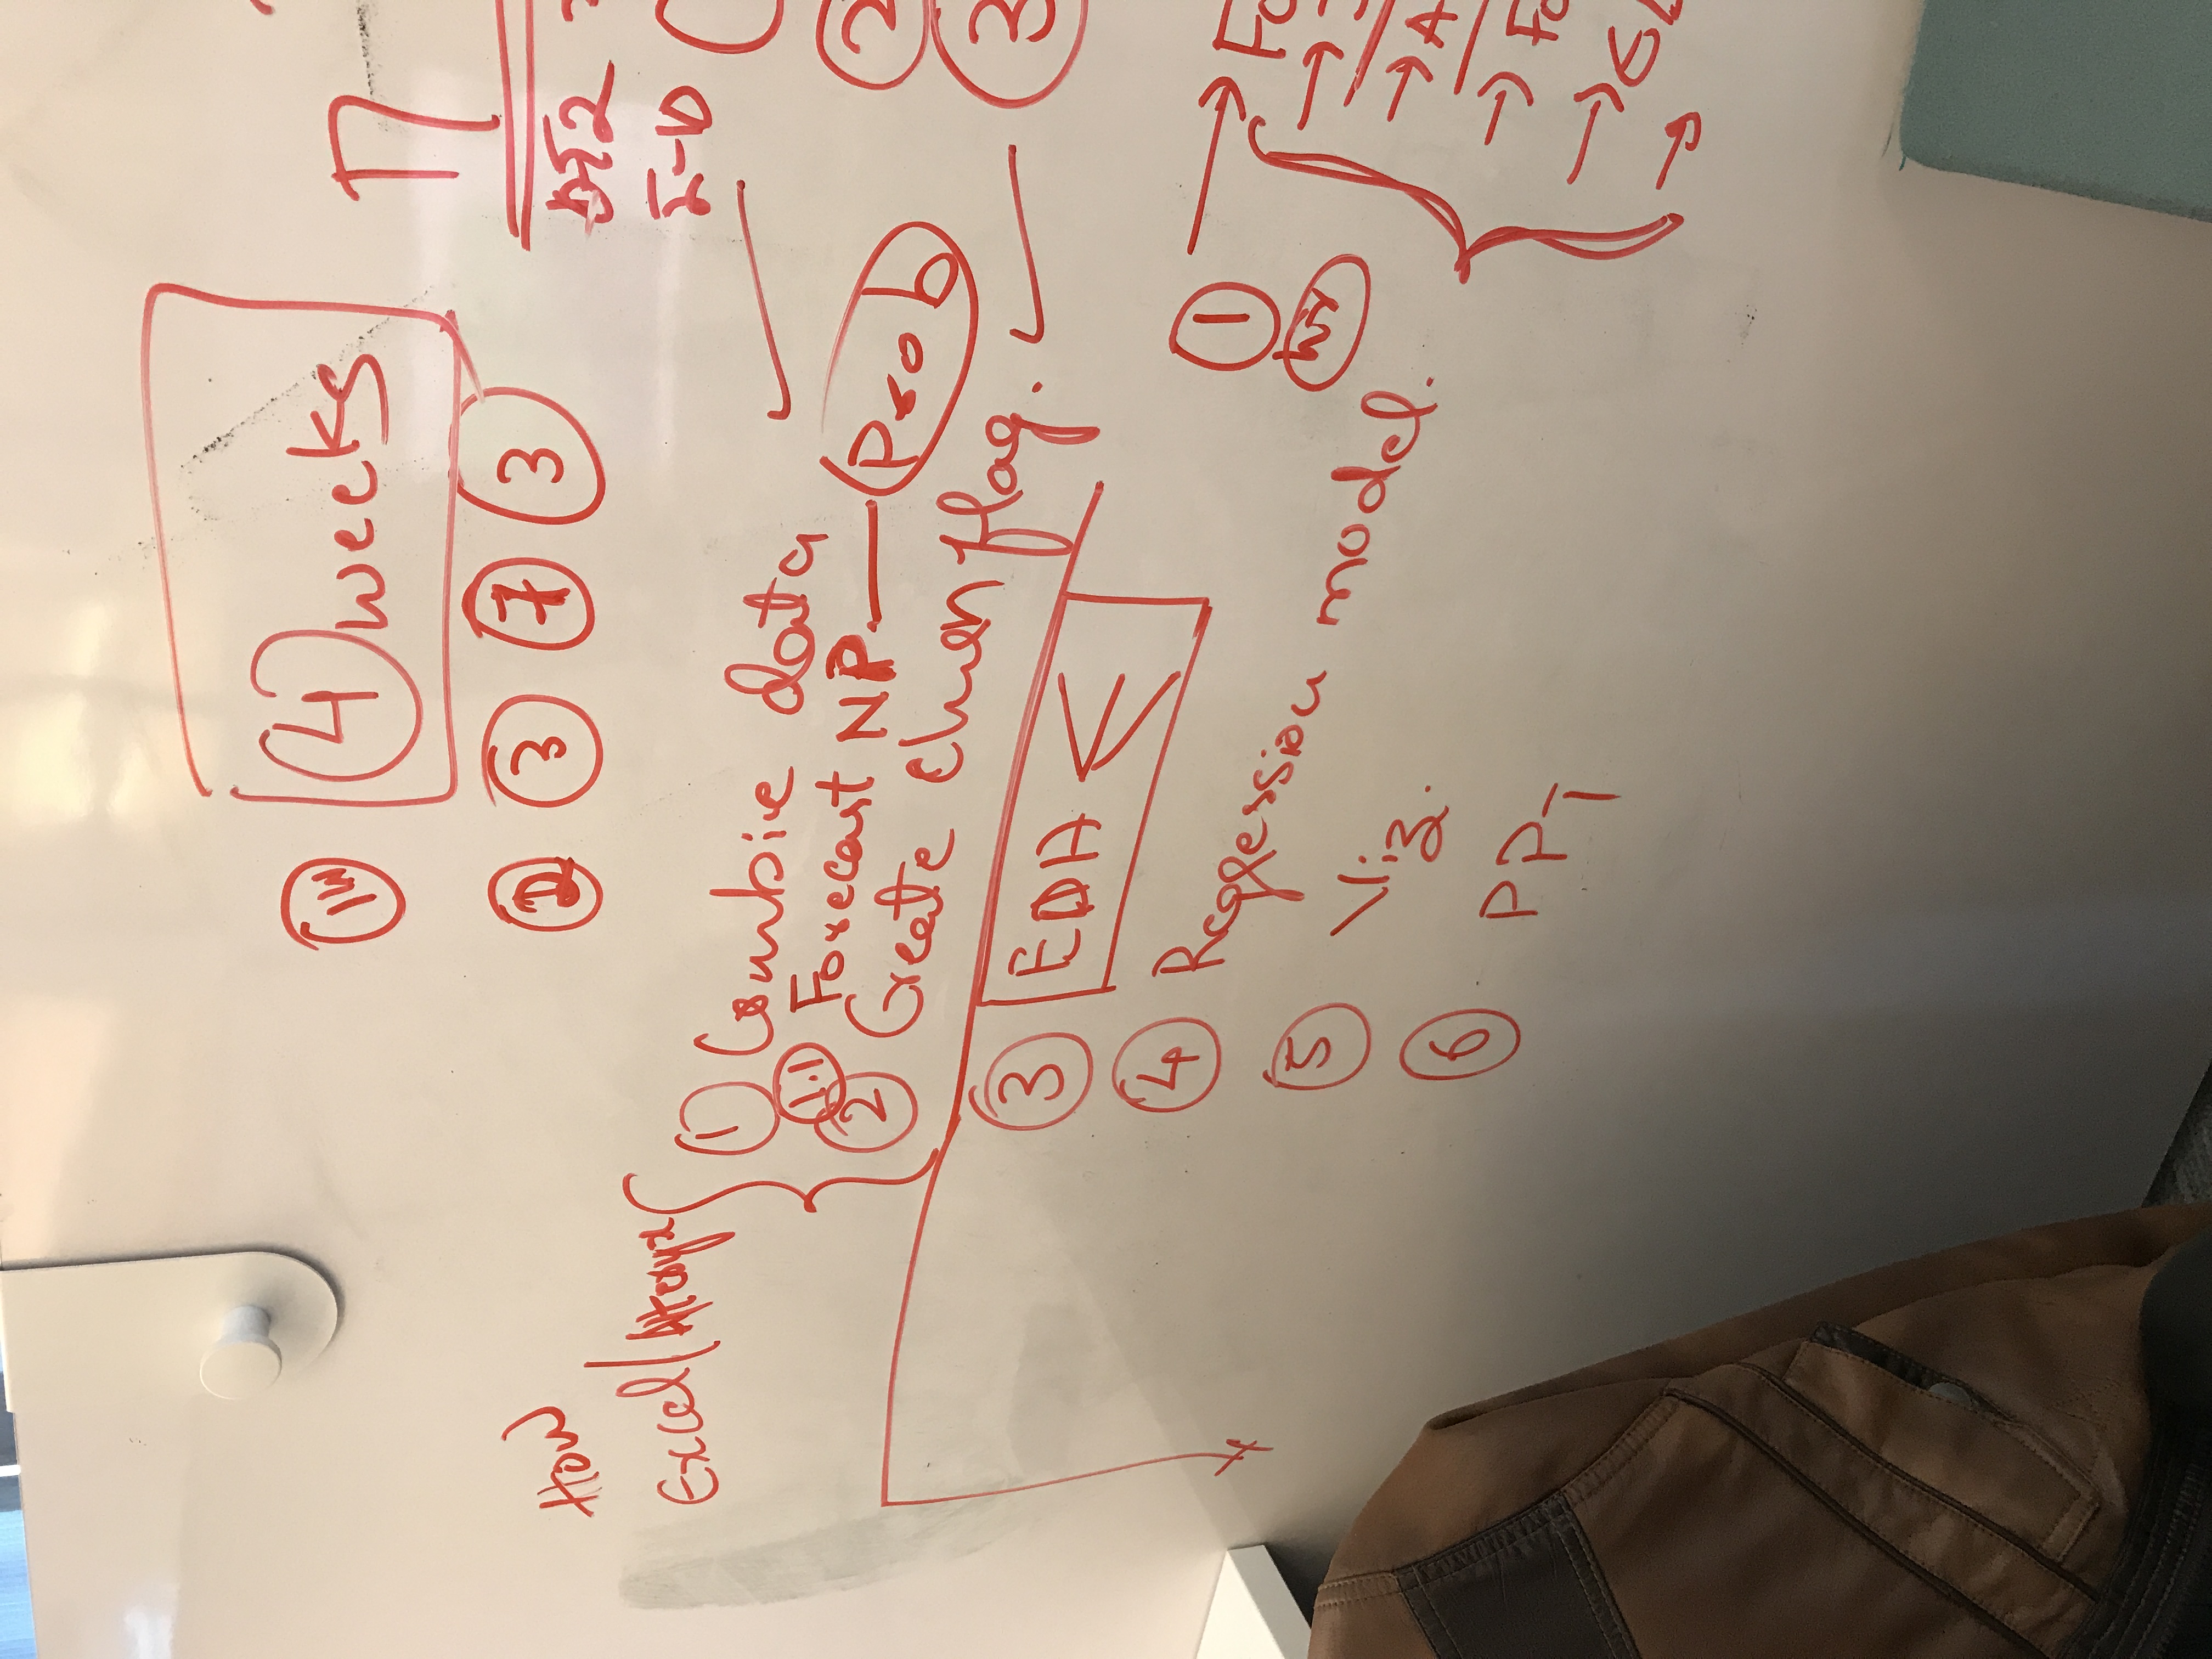 1W 4 weeks
2 3 7 3
How
Excel/Alteryx
1 Combine data
1.1 Forecast NP — Prob
2 Create churn flag.
3 EDA
4 Regression model.
5 Viz.
6 PPT
I-10
2
3
1 → Fo
→
→ A
→ Fo
→
→